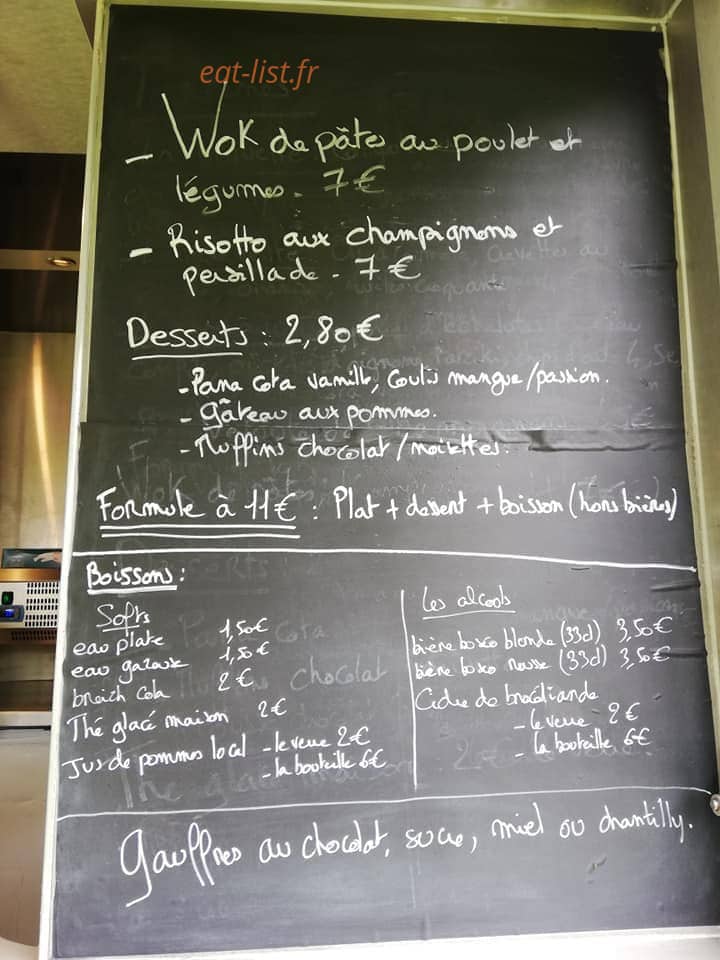 eat-list.fr
- Wok de pâtes au poulet et
légumes - 7€
- Risotto aux champignons et
persillade - 7€
Desserts : 2,80€
- Pana cota vanille, Coulis mangue/passion.
- gâteau aux pommes.
- Muffins chocolat/noisettes.
Formule à 11€ : Plat + dessert + boisson (hors bières)
Boissons :
Softs
eau plate 1,50€
eau gazeuse 1,50€
breizh Cola 2€
Thé glacé maison 2€
Jus de pommes local - le verre 2€
- la bouteille 6€
Les alcools
bière bosco blonde (33cl) 3,50€
bière bosco rousse (33cl) 3,50€
Cidre de brocéliande
- le verre 2€
- la bouteille 6€
Gauffres au chocolat, sucre, miel ou chantilly.